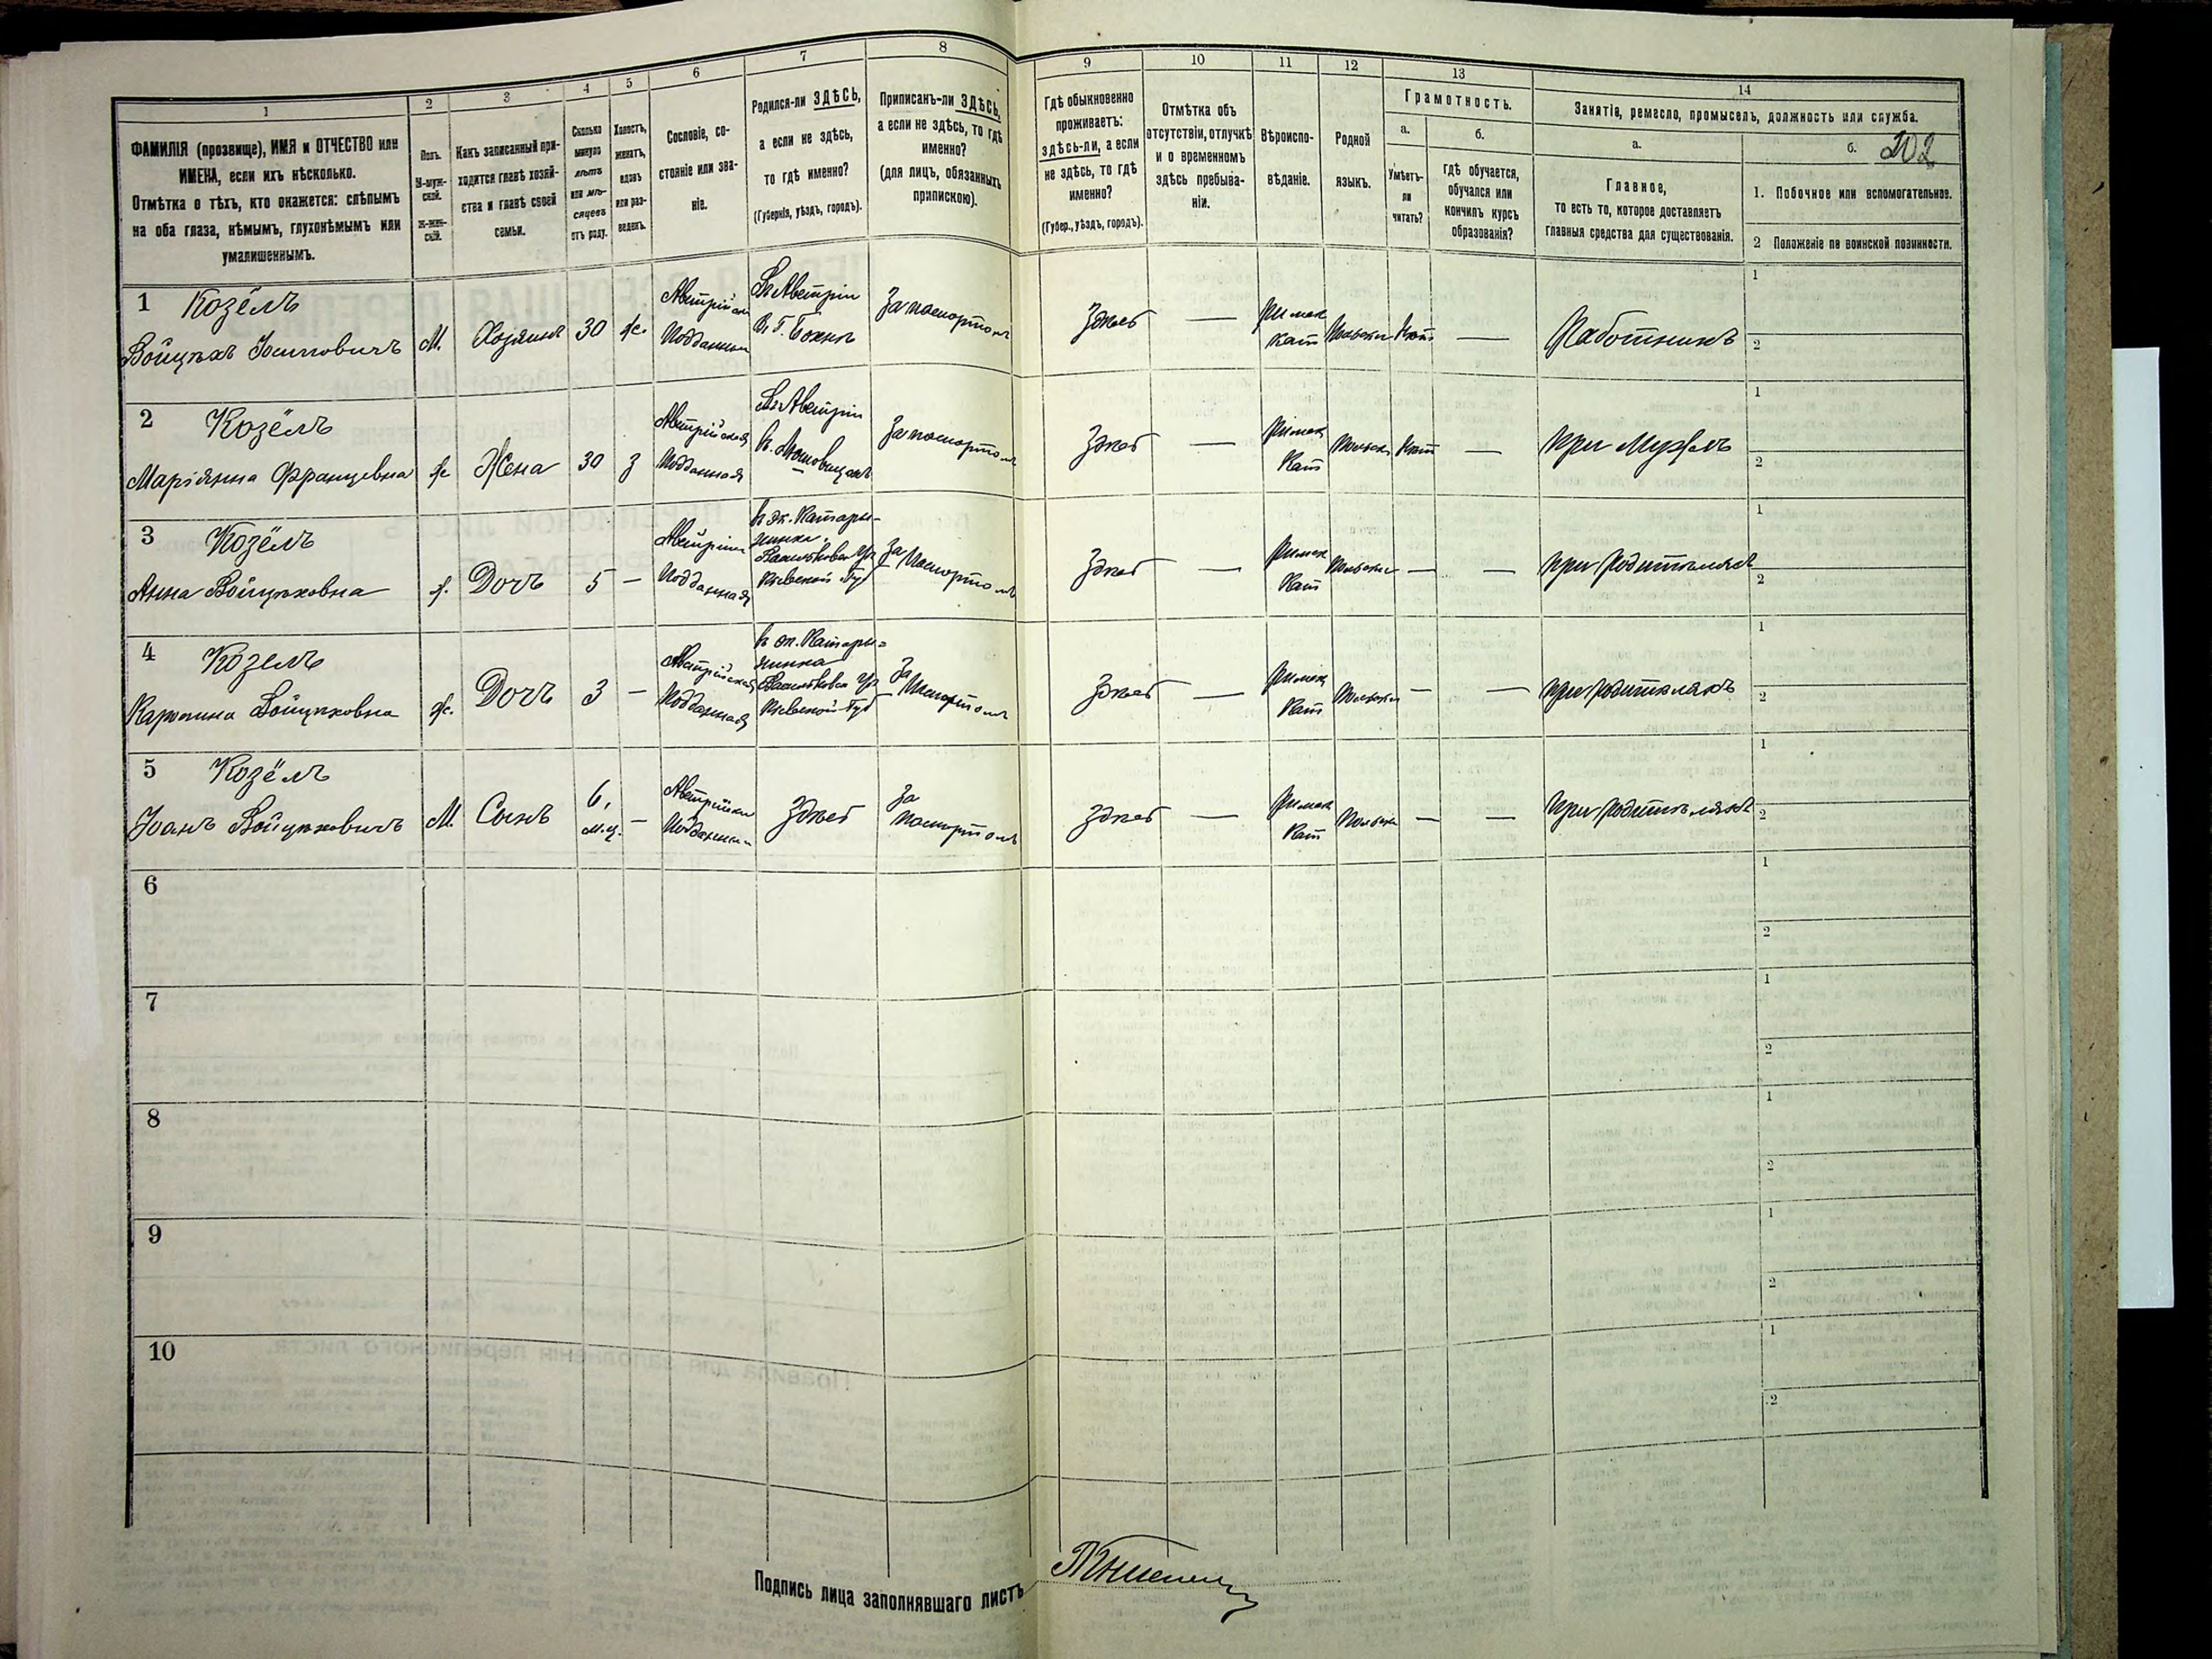 1
ФАМИЛІЯ (прозвище), ИМЯ и ОТЧЕСТВО или
ИМЕНА, если ихъ нѣсколько.
Отмѣтка о тѣхъ, кто окажется: слѣпымъ
на оба глаза, нѣмымъ, глухонѣмымъ или
умалишеннымъ.
2
Полъ.
М-муж-
ской.
Ж-жен-
скій.
3
Какъ записанный при-
ходится главѣ хозяй-
ства и главѣ своей
семьи.
4
Сколько
минуло
лѣтъ
или мѣ-
сяцевъ
отъ роду.
5
Холостъ,
женатъ,
вдовъ
или раз-
веденъ.
6
Сословіе, со-
стояніе или зва-
ніе.
7
Родился-ли ЗДѢСЬ,
а если не здѣсь,
то гдѣ именно?
(Губернія, уѣздъ, городъ).
8
Приписанъ-ли ЗДѢСЬ,
а если не здѣсь, то гдѣ
именно?
(для лицъ, обязанныхъ
припискою).
9
Гдѣ обыкновенно
проживаетъ:
здѣсь-ли, а если
не здѣсь, то гдѣ
именно?
(Губер., уѣздъ, городъ).
10
Отмѣтка объ
отсутствіи, отлучкѣ
и о временномъ
здѣсь пребыва-
ніи.
11
Вѣроиспо-
вѣданіе.
12
Родной
языкъ.
13
Грамотность.
а.
Умѣетъ-
ли
читать?
б.
гдѣ обучается,
обучался или
кончилъ курсъ
образованія?
14
Занятіе, ремесло, промыселъ, должность или служба.
а.
Главное,
то есть то, которое доставляетъ
главныя средства для существованія.
б.
202
1. Побочное или вспомогательное.
2 Положеніе по воинской повинности.
1 Козёлъ
Войцѣхъ
М.
Хозяинъ
30
же.
Въ Австріи
За паспортомъ
Здѣсь
—
Римск
Кат
Нѣт
—
Работникъ
1
2
2 Козёлъ
Маріянна Францевна
ж
Жена
30
З
Австрійская
Подданная
Въ Австріи
За паспортомъ
Здѣсь
—
Римск
Кат
Нѣт
—
при Мужѣ
1
2
3 Козёлъ
Анна Войцѣховна
ж.
Дочь
5
—
Подданная
въ эк. Катары-
нинка
Васильковск уѣз
Кіевской Губ
За
Паспортомъ
Здѣсь
—
Римск
Кат
—
—
при родителяхъ
1
2
4 Козелъ
Каролина Войцѣховна
ж.
Дочь
3
—
Австрійская
Подданная
въ эк. Катары-
нинка
Васильковск уѣз
Кіевской Губ
За
Паспортомъ
Здѣсь
—
Римск
Кат
—
—
при родителяхъ
1
2
5 Козёлъ
Іоанъ Войцѣховичъ
М.
Сынъ
6,
м.ц.
—
Здѣсь
За
паспортомъ
Здѣсь
—
Римск
Кат
—
—
при родителяхъ
1
2
6
1
2
7
1
2
8
1
2
9
1
2
10
1
2
Подпись лица заполнявшаго листъ